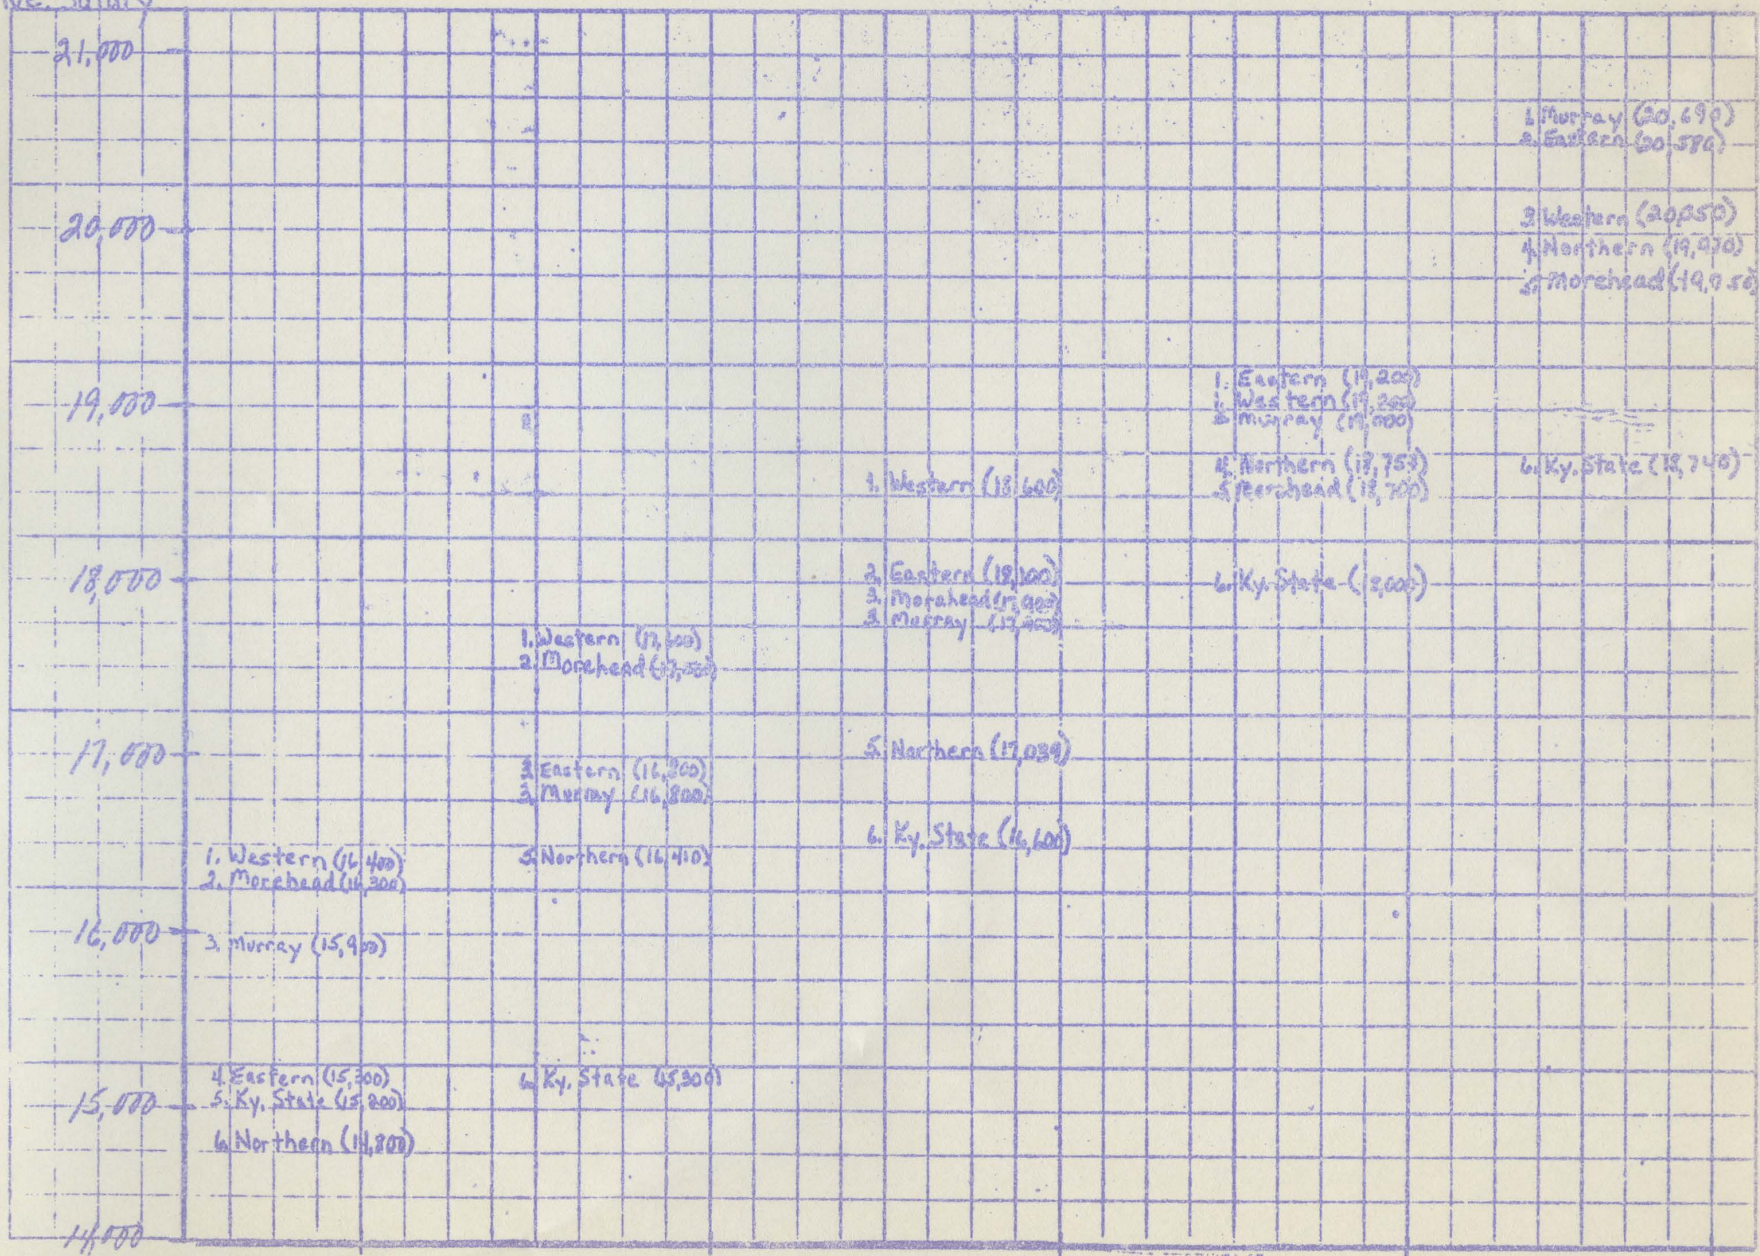 Ave. Salary
21,000
20,000
19,000
18,000
17,000
16,000
15,000
14,000
1. Western (16,400)
2. Morehead (16,300)
3. Murray (15,900)
4. Eastern (15,300)
5. Ky. State (15,200)
6. Northern (14,800)
1. Western (17,600)
2. Morehead (17,500)
3. Eastern (16,800)
3. Murray (16,800)
5. Northern (16,410)
6. Ky. State (15,300)
1. Western (18,600)
2. Eastern (18,100)
3. Morehead (17,900)
3. Murray (17,900)
5. Northern (17,039)
6. Ky. State (16,600)
1. Eastern (19,200)
1. Western (19,200)
Murray (19,000)
4. Northern
5. Morehead (18,700)
6. Ky. State (18,000)
1. Murray (20,690)
2. Eastern (20,580)
3. Western (20,050)
4. Northern
5. Morehead
6. Ky. State (18,740)